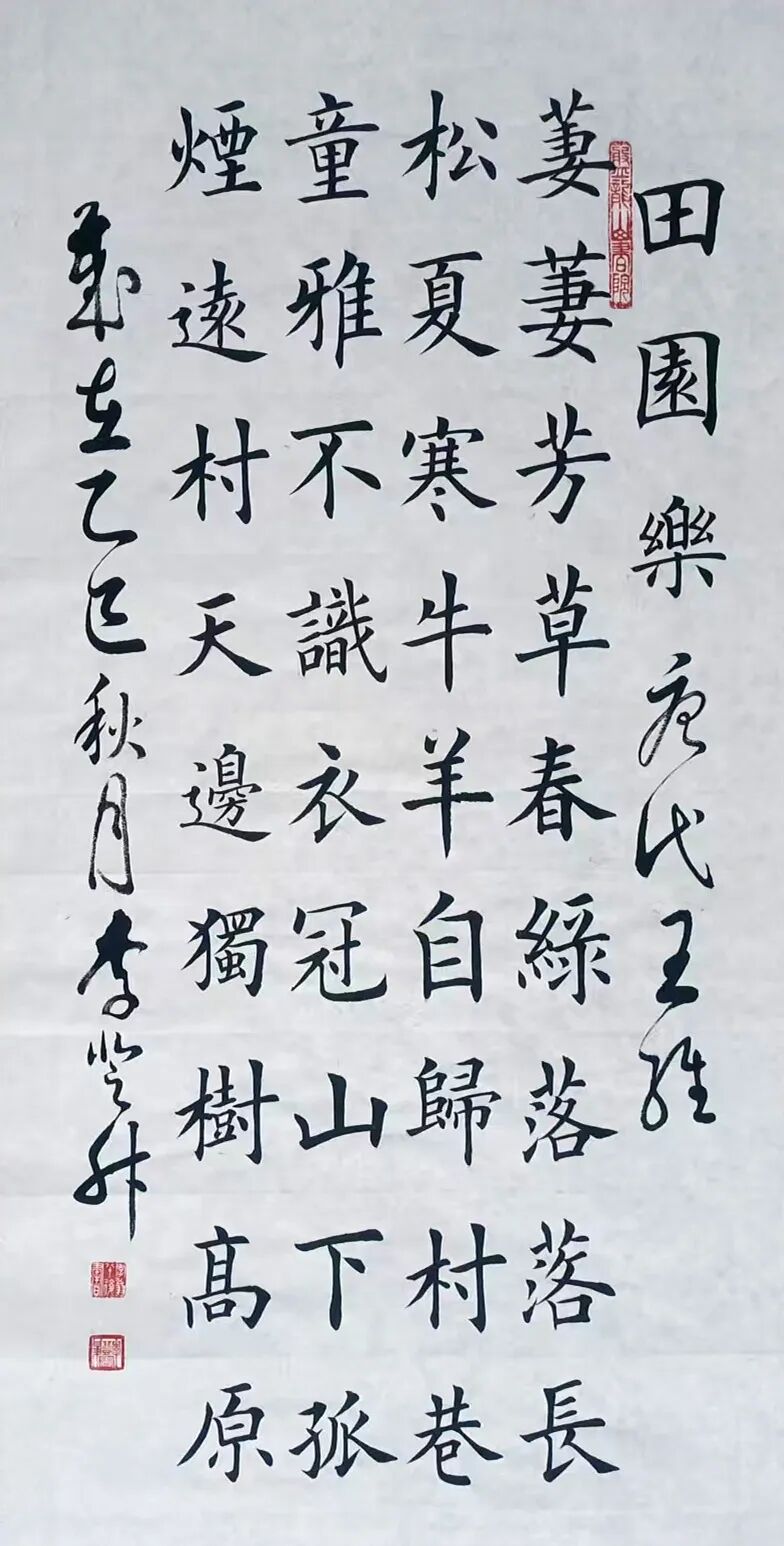 田園樂 唐代王維
萋萋芳草春綠落落長
松夏寒牛羊自歸村巷
童雅不識衣冠山下孤
煙遠村天邊獨樹髙原
歲在乙巳秋月李登